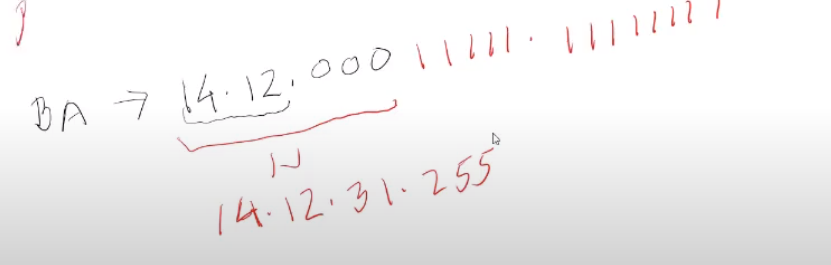 BA → 14.12.00011111.11111111
N
14.12.31.255